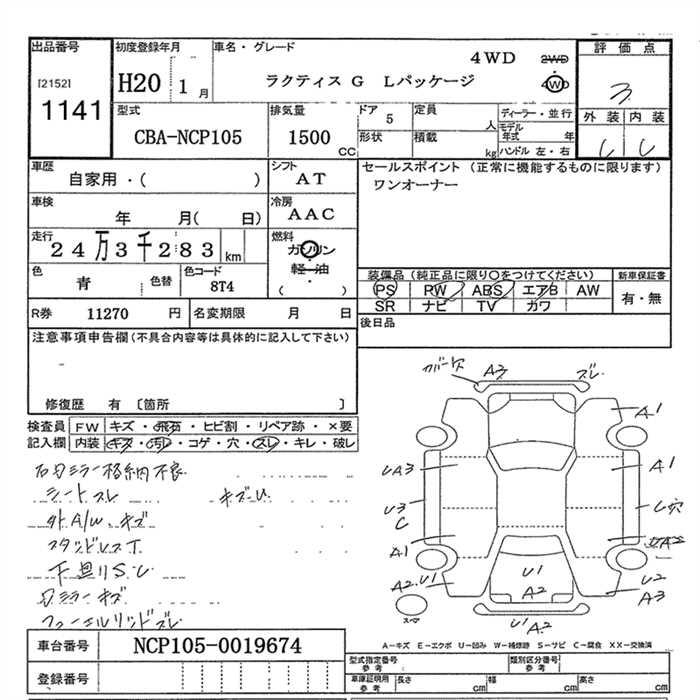 出品番号 初度登録年月 車名・グレード 4WD 2WD 評価点
[2152] H20 1月 ラクティス G Lパッケージ 4WD 3
1141
型式 排気量 ドア 5 定員 人 ディーラー・並行 外装 内装
CBA-NCP105 1500 CC 形状 積載 kg モデル年式 年
ハンドル 左・右
車歴 シフト セールスポイント (正常に機能するものに限ります)
自家用・( ) AT ワンオーナー
車検 冷房
年 月( 日) AAC
走行 燃料
24万3千283 km ガソリン
軽・油
( )
色 色替 色コード 装備品 (純正品に限り○をつけてください) 新車保証書
青 8T4 PS PW ABS エアB AW 有・無
SR ナビ TV カワ
R券 11270 円 名変期限 月 日 後日品
注意事項申告欄 (不具合内容等は具体的に記入して下さい)
修復歴 有 〔箇所 〕
検査員記入欄 FW キズ・飛石・ヒビ割・リペア跡・×要
内装 キズ・汚レ・コゲ・穴・スレ・キレ・破レ
右Dミラー格納不良
シートスレ キズU
外A/W キズ
下廻りS.U
Dミラーキズ
A3 ズレ
A1
UA3 A1
U3 C
A1
A2 U1 U1 U2
A2 A3
スマ U1 A2
A-キズ E-エクボ U-凹み W-補修跡 S-サビ C-腐食 XX-交換済
車台番号 NCP105-0019674
登録番号
型式指定番号 参考 類別区分番号 参考
車庫証明用 参考 長さ cm 幅 cm 高さ cm